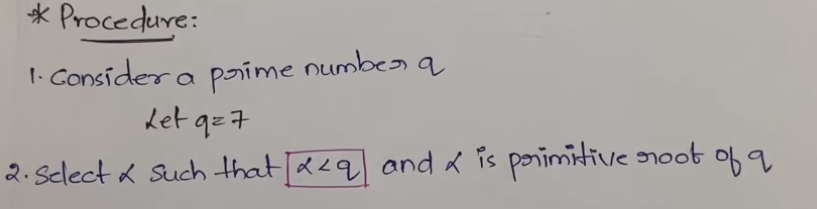 * Procedure:
1. Consider a prime number q
Let q=7
2. Select α such that α<q and α is primitive root of q